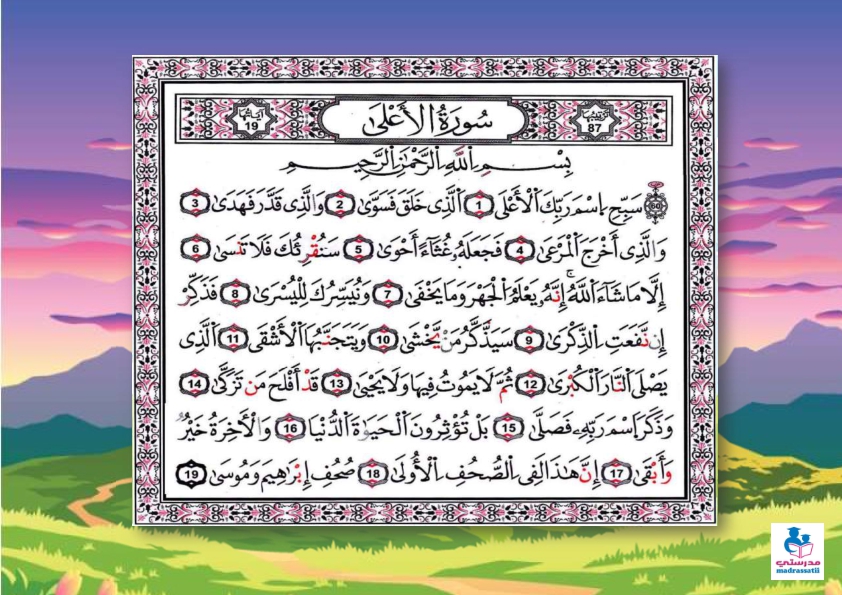 آيَاتُهَا 19
سُورَةُ الْأَعْلَىٰ
تَرْتِيبُهَا 87
بِسْمِ اللَّهِ الرَّحْمَٰنِ الرَّحِيمِ
60 سَبِّحِ اِسْمَ رَبِّكَ اَلْأَعْلَى 1 اَلَّذِى خَلَقَ فَسَوَّىٰ 2 وَالَّذِى قَدَّرَ فَهَدَىٰ 3
وَالَّذِى أَخْرَجَ اَلْمَرْعَىٰ 4 فَجَعَلَهُۥ غُثَآءً أَحْوَىٰ 5 سَنُقْرِئُكَ فَلَا تَنسَىٰ 6
إِلَّا مَا شَآءَ اَللَّهُ إِنَّهُۥ يَعْلَمُ اُلْجَهْرَ وَمَا يَخْفَىٰ 7 وَنُيَسِّرُكَ لِلْيُسْرَىٰ 8 فَذَكِّرْ
إِن نَّفَعَتِ اِلذِّكْرَىٰ 9 سَيَذَّكَّرُ مَنْ يَّخْشَىٰ 10 وَيَتَجَنَّبُهَا اَلْأَشْقَى 11 اَلَّذِى
يَصْلَى اَلنَّارَ اَلْكُبْرَىٰ 12 ثُمَّ لَا يَمُوتُ فِيهَا وَلَا يَحْيَىٰ 13 قَدْ أَفْلَحَ مَن تَزَكَّىٰ 14
وَذَكَرَ اَسْمَ رَبِّهِۦ فَصَلَّىٰ 15 بَلْ تُؤْثِرُونَ اَلْحَيَوٰةَ اَلدُّنْيَا 16 وَالْأَخِرَةُ خَيْرٌ
وَأَبْقَىٰ 17 إِنَّ هَٰذَا لَفِى اِلصُّحُفِ اِلْأُولَىٰ 18 صُحُفِ إِبْرَٰهِيمَ وَمُوسَىٰ 19
مدرستي
madrassatii